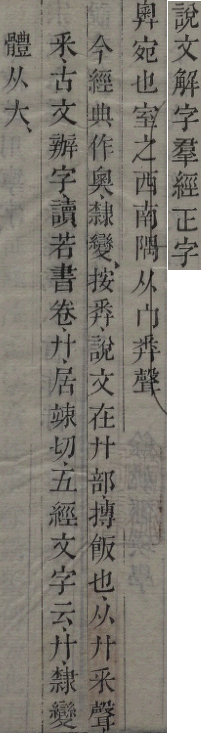 說文解字羣經正字
𡪀宛也室之西南隅从宀𢍏聲
今經典作奧、隸變、按𢍏、說文在廾部、摶飯也、从廾釆聲
釆、古文辦字讀若書卷、廾、居竦切、五經文字云、廾、隸變
體从大、